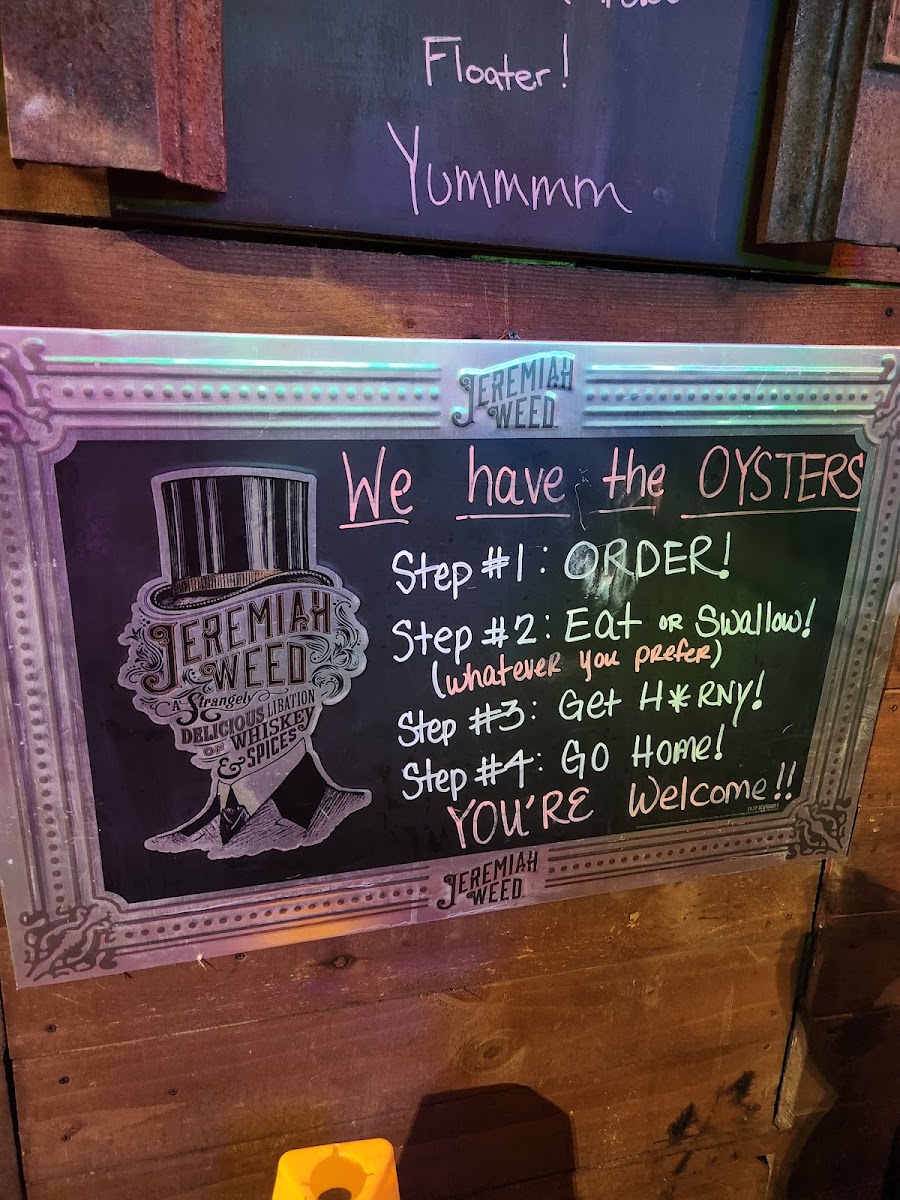 Floater!
Yummmm
JEREMIAH
WEED
We have the OYSTERS
Step #1: ORDER!
Step #2: Eat OR Swallow!
(whatever you prefer)
Step #3: Get H*RNY!
Step #4: Go Home!
YOU'RE Welcome!!
JEREMIAH
WEED
A Strangely
DELICIOUS LIBATION
OF WHISKEY
& SPICES
JEREMIAH
WEED